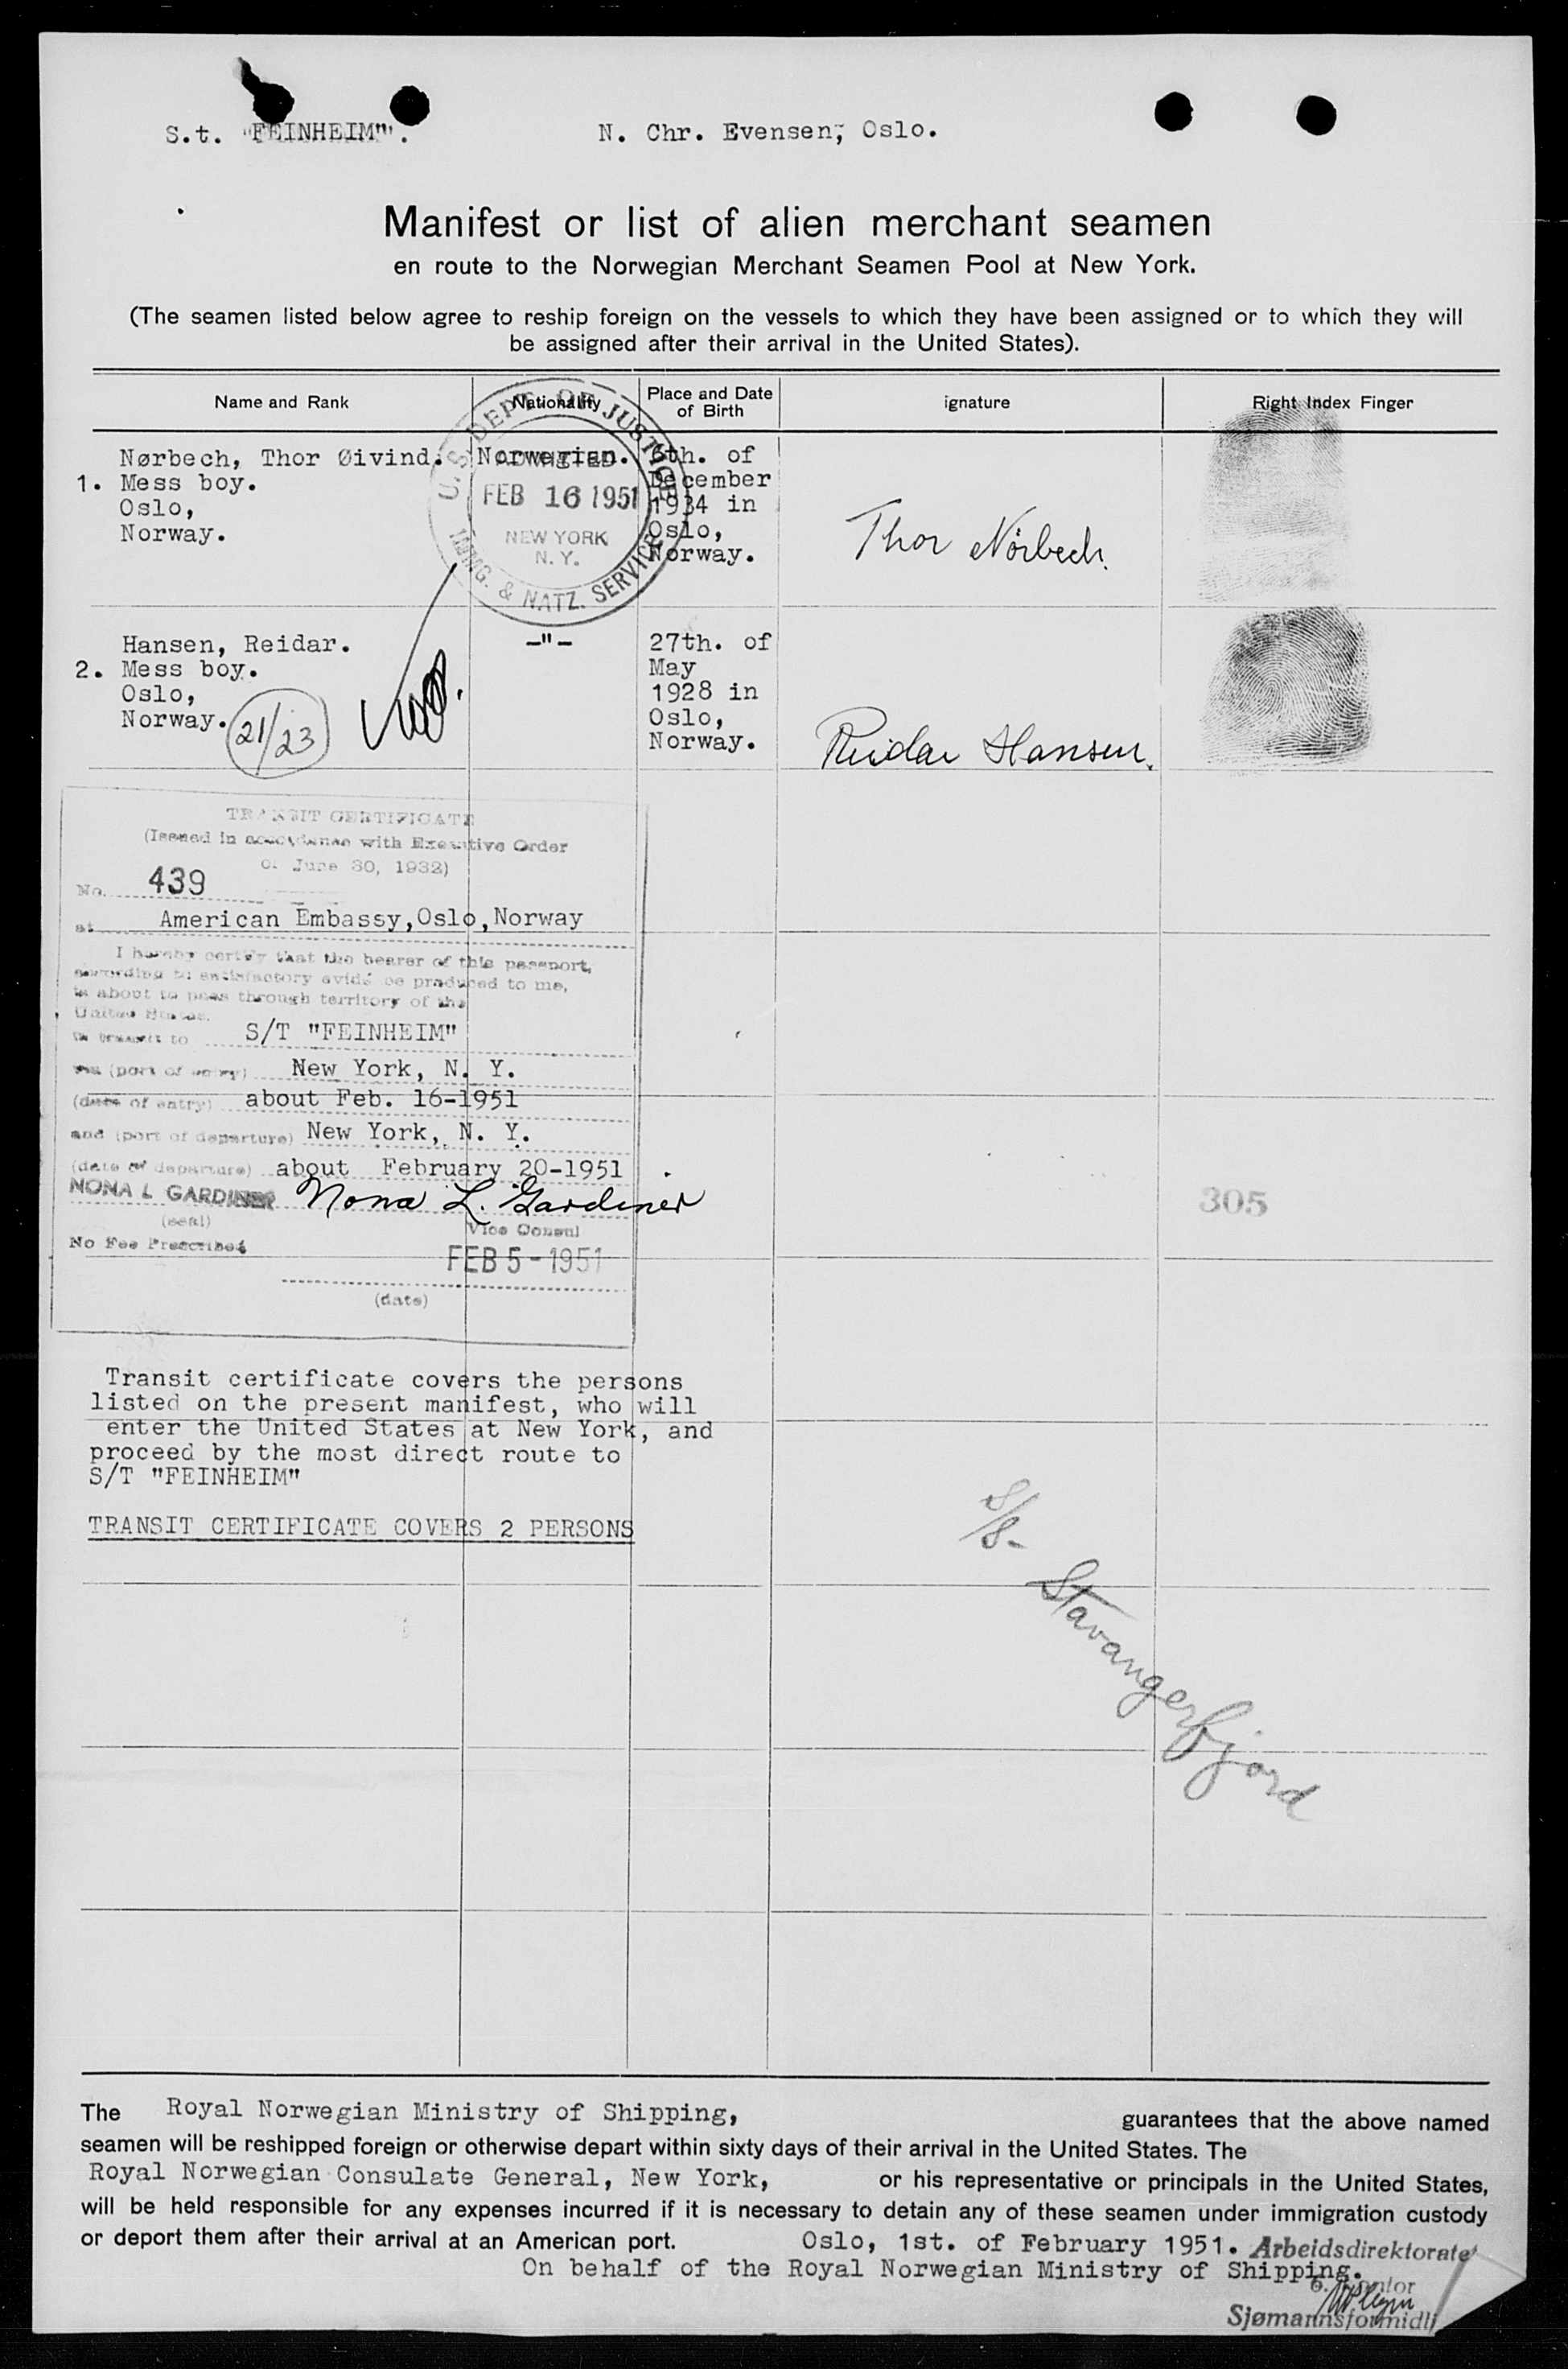 S.t. "FEINHEIM".
N. Chr. Evensen, Oslo.
Manifest or list of alien merchant seamen
en route to the Norwegian Merchant Seamen Pool at New York.
(The seamen listed below agree to reship foreign on the vessels to which they have been assigned or to which they will
be assigned after their arrival in the United States).
Name and Rank
Nationality
Place and Date
of Birth
ignature
Right Index Finger
1.
Nørbech, Thor Øivind.
Mess boy.
Oslo,
Norway.
Norwegian.
6th. of
December
1934 in
Oslo,
Norway.
Thor Nörbech.
U. S. DEPT. OF JUSTICE
ADMITTED
FEB 16 1951
NEW YORK
N. Y.
IMMG. & NATZ. SERVICE
2.
Hansen, Reidar.
Mess boy.
Oslo,
Norway.
21/23
-"-
27th. of
May
1928 in
Oslo,
Norway.
Reidar Hansen.
TRANSIT CERTIFICATE
(Issued in accordance with Executive Order
of June 30, 1932)
No. 439
at American Embassy,Oslo,Norway
I hereby certify that the bearer of this passport,
according to satisfactory evidence produced to me,
is about to pass through territory of the
United States.
in transit to S/T "FEINHEIM"
via (port of entry) New York, N. Y.
(date of entry) about Feb. 16-1951
and (port of departure) New York, N. Y.
(date of departure) about February 20-1951
NONA L GARDINER Nona L. Gardiner
(seal) Vice Consul
No Fee Prescribed
FEB 5 - 1951
(date)
305
Transit certificate covers the persons
listed on the present manifest, who will
enter the United States at New York, and
proceed by the most direct route to
S/T "FEINHEIM"
TRANSIT CERTIFICATE COVERS 2 PERSONS
S/S- Stavangerfjord
The Royal Norwegian Ministry of Shipping, guarantees that the above named
seamen will be reshipped foreign or otherwise depart within sixty days of their arrival in the United States. The
Royal Norwegian Consulate General, New York, or his representative or principals in the United States,
will be held responsible for any expenses incurred if it is necessary to detain any of these seamen under immigration custody
or deport them after their arrival at an American port. Oslo, 1st. of February 1951. Arbeidsdirektoratet
On behalf of the Royal Norwegian Ministry of Shipping.
6. kontor
Sjømannsformidli